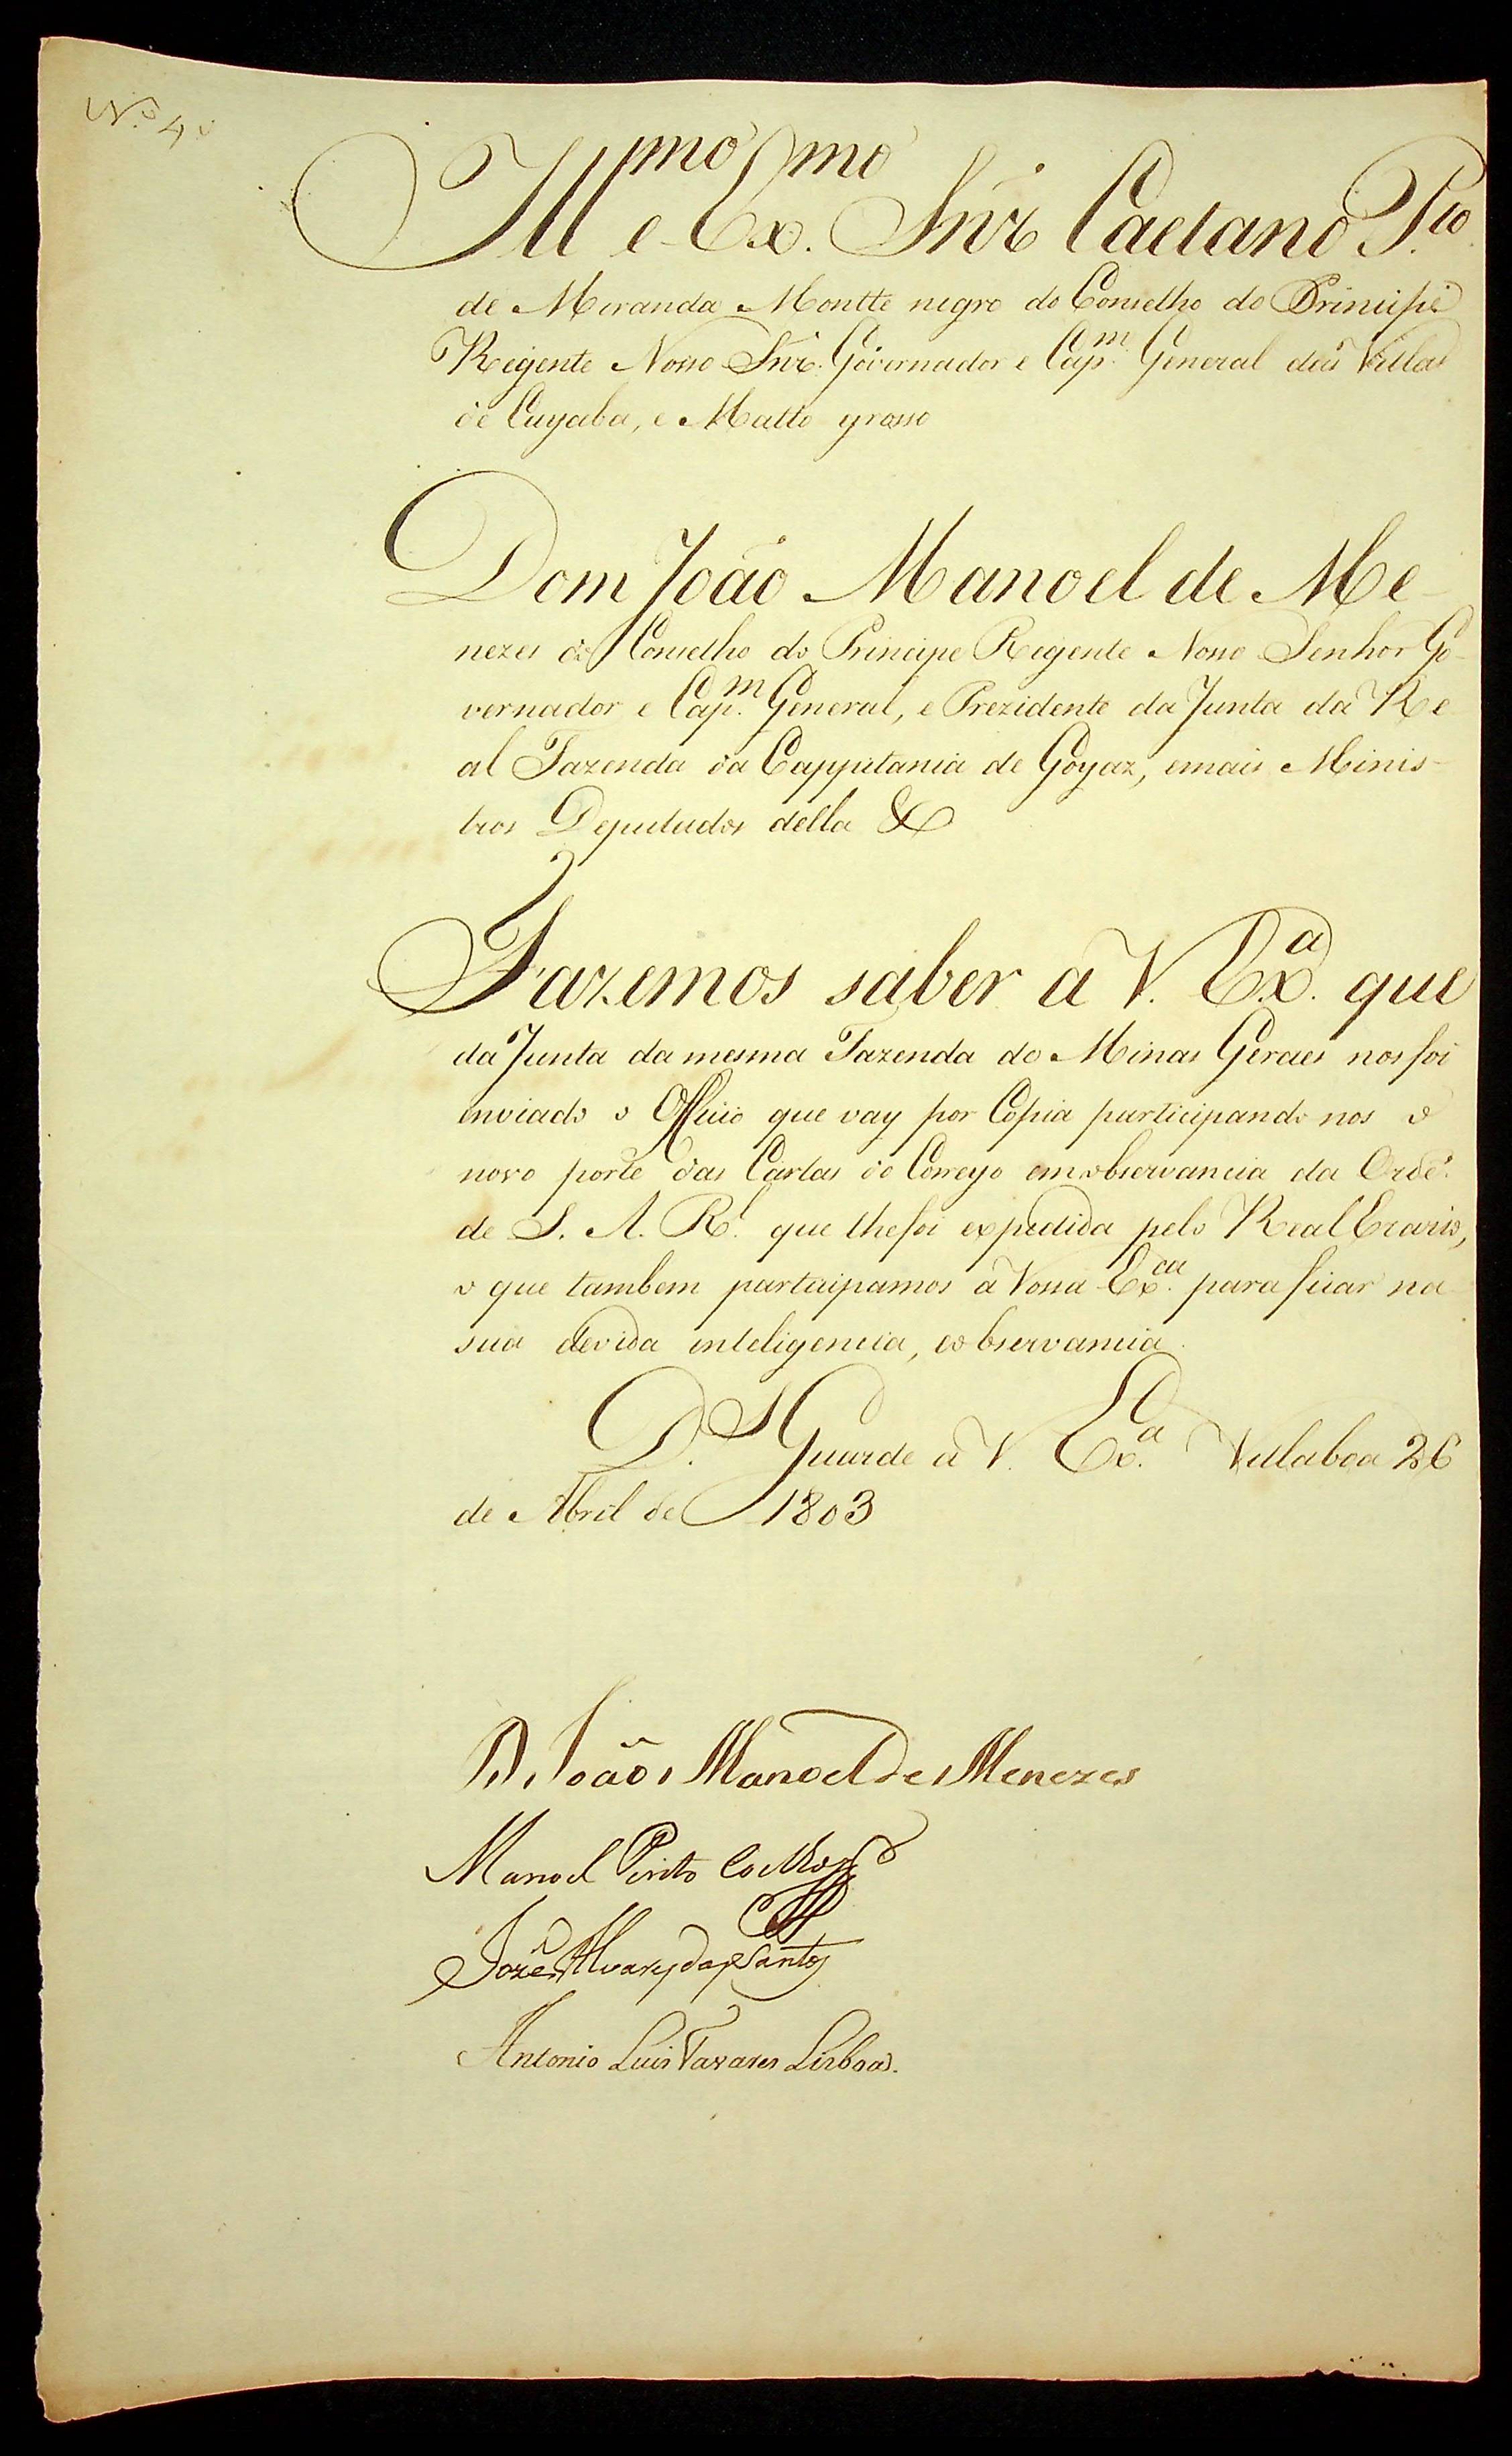 N.º 4º
Ill.mo e Ex.mo Snr Caetano P.to
de Miranda Montte negro do Conselho do Principe
Regente Nosso Snr. Governador e Cap.m General das Villas
de Cuyaba, e Matto grosso
Dom João Manoel de Me-
nezes do Conselho do Principe Regente Nosso Senhor Go-
vernador e Cap.m General, e Prezidente da Junta da Re-
al Fazenda da Cappitania de Goyaz, emais Minis-
tros Deputados della &
Fazemos saber a V. Ex.a que
da Junta da mesma Fazenda de Minas Geraes nos foi
enviado o Officio que vay por Copia participando nos o
novo porte das Cartas do Correyo em observancia da Orde.
de S. A. R.l que lhe foi expedida pelo Real Erario,
o que tambem partecipamos a Vossa Ex.ca para ficar na
sua devida inteligencia, eobservancia.
D.s Guarde a V. Ex.a Villaboa 26
de Abril de 1803
D. João Manoel De Menezes
Manoel Pinto Coelho
Jozé Alvares dos Santos
Antonio Luis Tavares Lisboa.